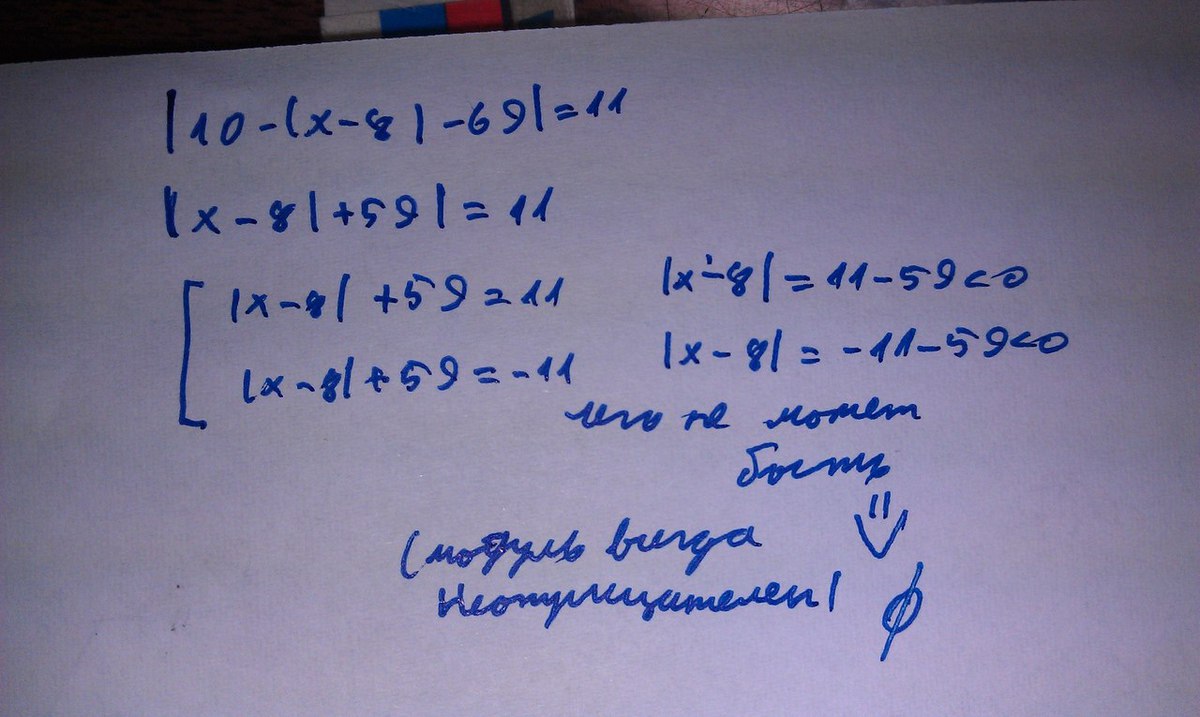 |10-(x-8|-69|=11
|x-8|+59|=11
|x-8|+59=11
|x-8|+59=-11
|x-8|=11-59<0
|x-8|=-11-59<0
чего не может
быть
⇓
(модуль всегда
неотрицателен)
∅